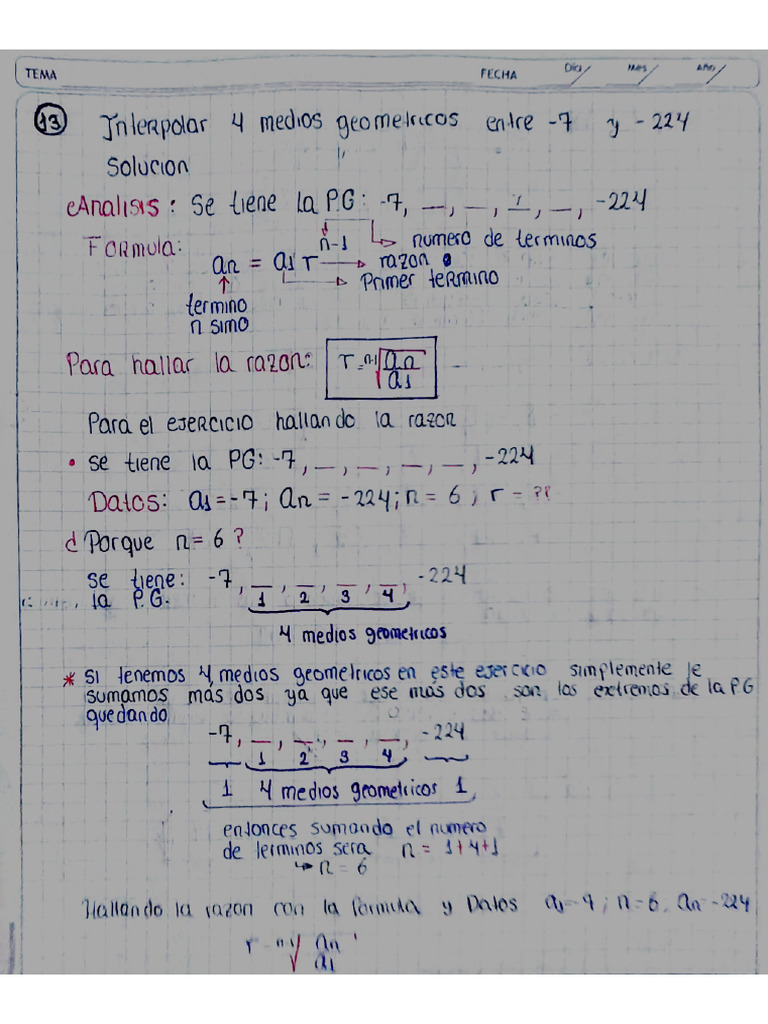 TEMA FECHA Dia/ Mes/ Año/
13 Interpolar 4 medios geometricos entre -7 y -224
Solucion
Analisis: Se tiene La P.G: -7, __, __, __, __, -224
Formula: n-1 → numero de terminos
an = a1 r → razon
→ Primer termino
termino
n simo
Para hallar la razon: r = n-1√an/a1
Para el ejercicio hallando la razon
• se tiene la PG: -7, __, __, __, __, -224
Datos: a1 = -7; An = -224; n = 6; r = ??
¿ Porque n = 6 ?
se tiene: -7, __, __, __, __, -224
la P.G. 1 2 3 4
4 medios geometricos
* Si tenemos 4 medios geometricos en este ejercicio simplemente le
sumamos más dos ya que ese más dos son los extremos de la PG
quedando
-7, __, __, __, __, -224
1 2 3 4
1 4 medios geometricos 1
entonces sumando el numero
de terminos sera n = 1+4+1
↳ n = 6
Hallando la razon con la formula y Datos a1=-7; n=6. an=-224
r = n-1√an/a1